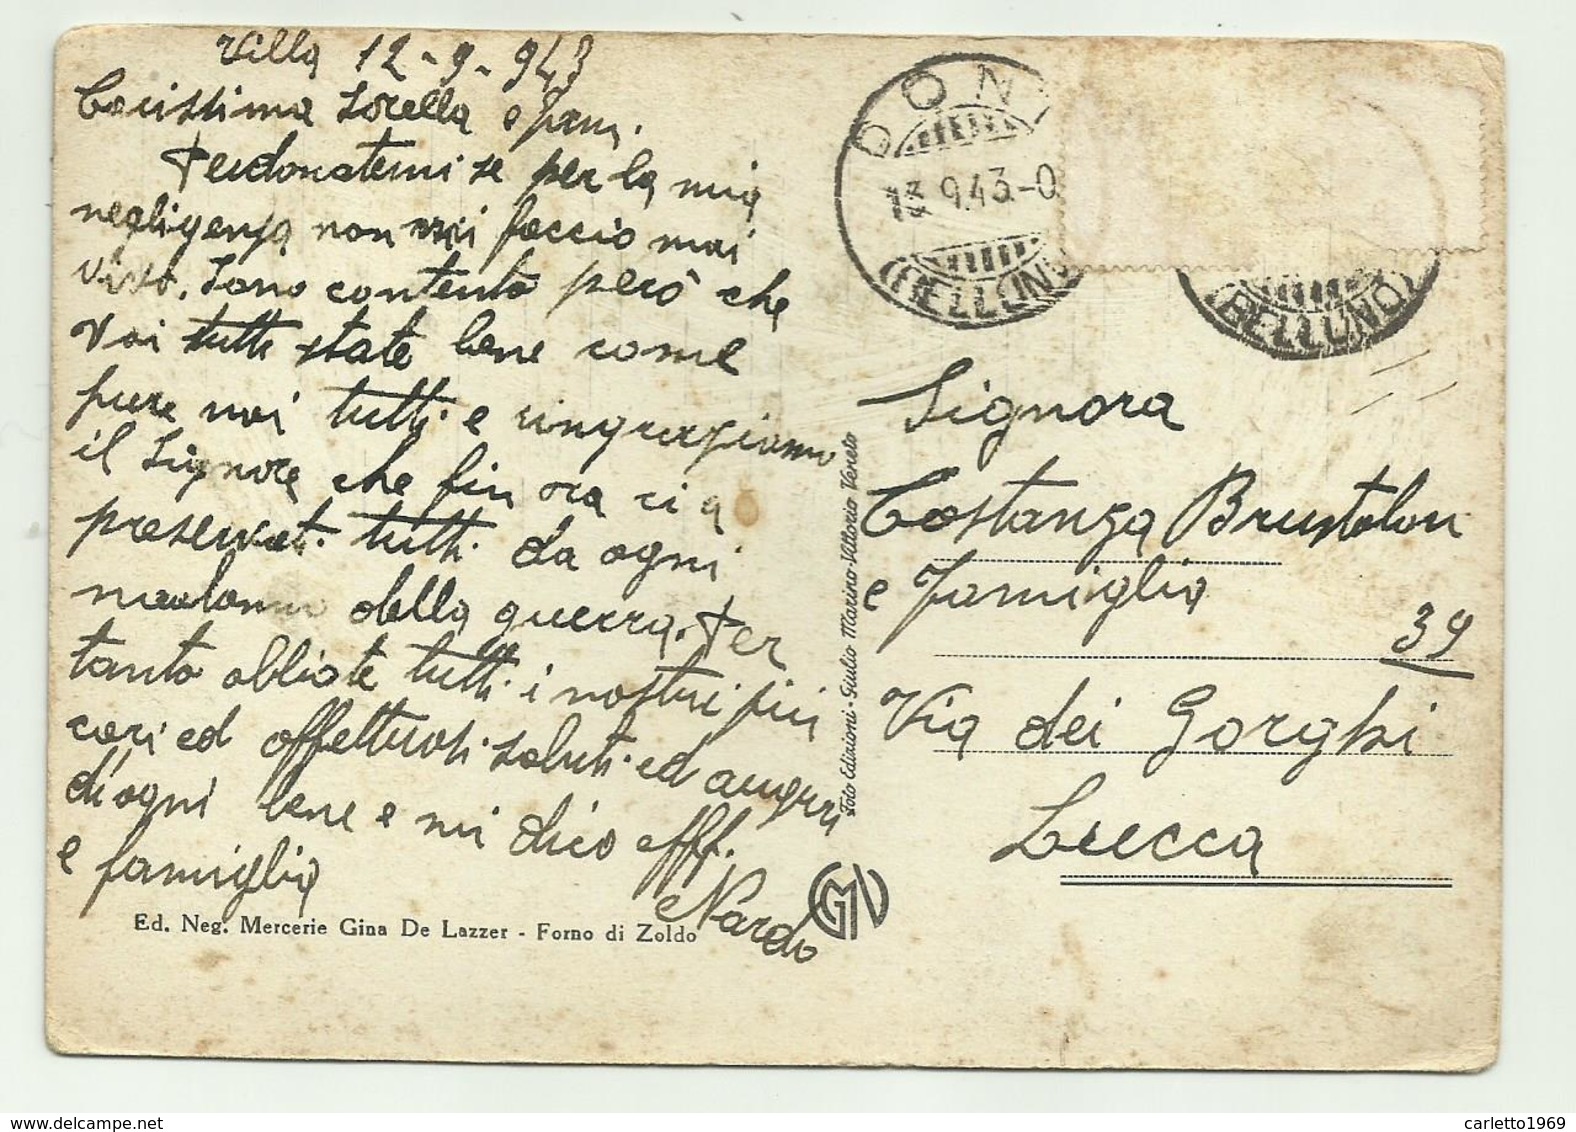 Villa 12-9-943
Carissima Sorella e fam.
Perdonatemi se per la mia
negligenza non mi faccio mai
vivo. Sono contento però che
Voi tutti state bene come
pure noi tutti e ringraziamo
il Signore che fin ora ci a
preservati tutti da ogni
malanno della guerra. Per
tanto abbiate tutti i nostri più
cari ed affettuosi saluti ed auguri
di ogni bene e mi dico aff.
e famiglia Nardo
Ed. Neg. Mercerie Gina De Lazzer - Forno di Zoldo
Foto Edizioni - Giulio Marino - Vittorio Veneto
GMV
DON
13.9.43.-0
(BELLUNO
(BELLUNO)
Signora
Costanza Brustolon
e Famiglia
39
Via dei Gorghi
Lucca
carletto1969